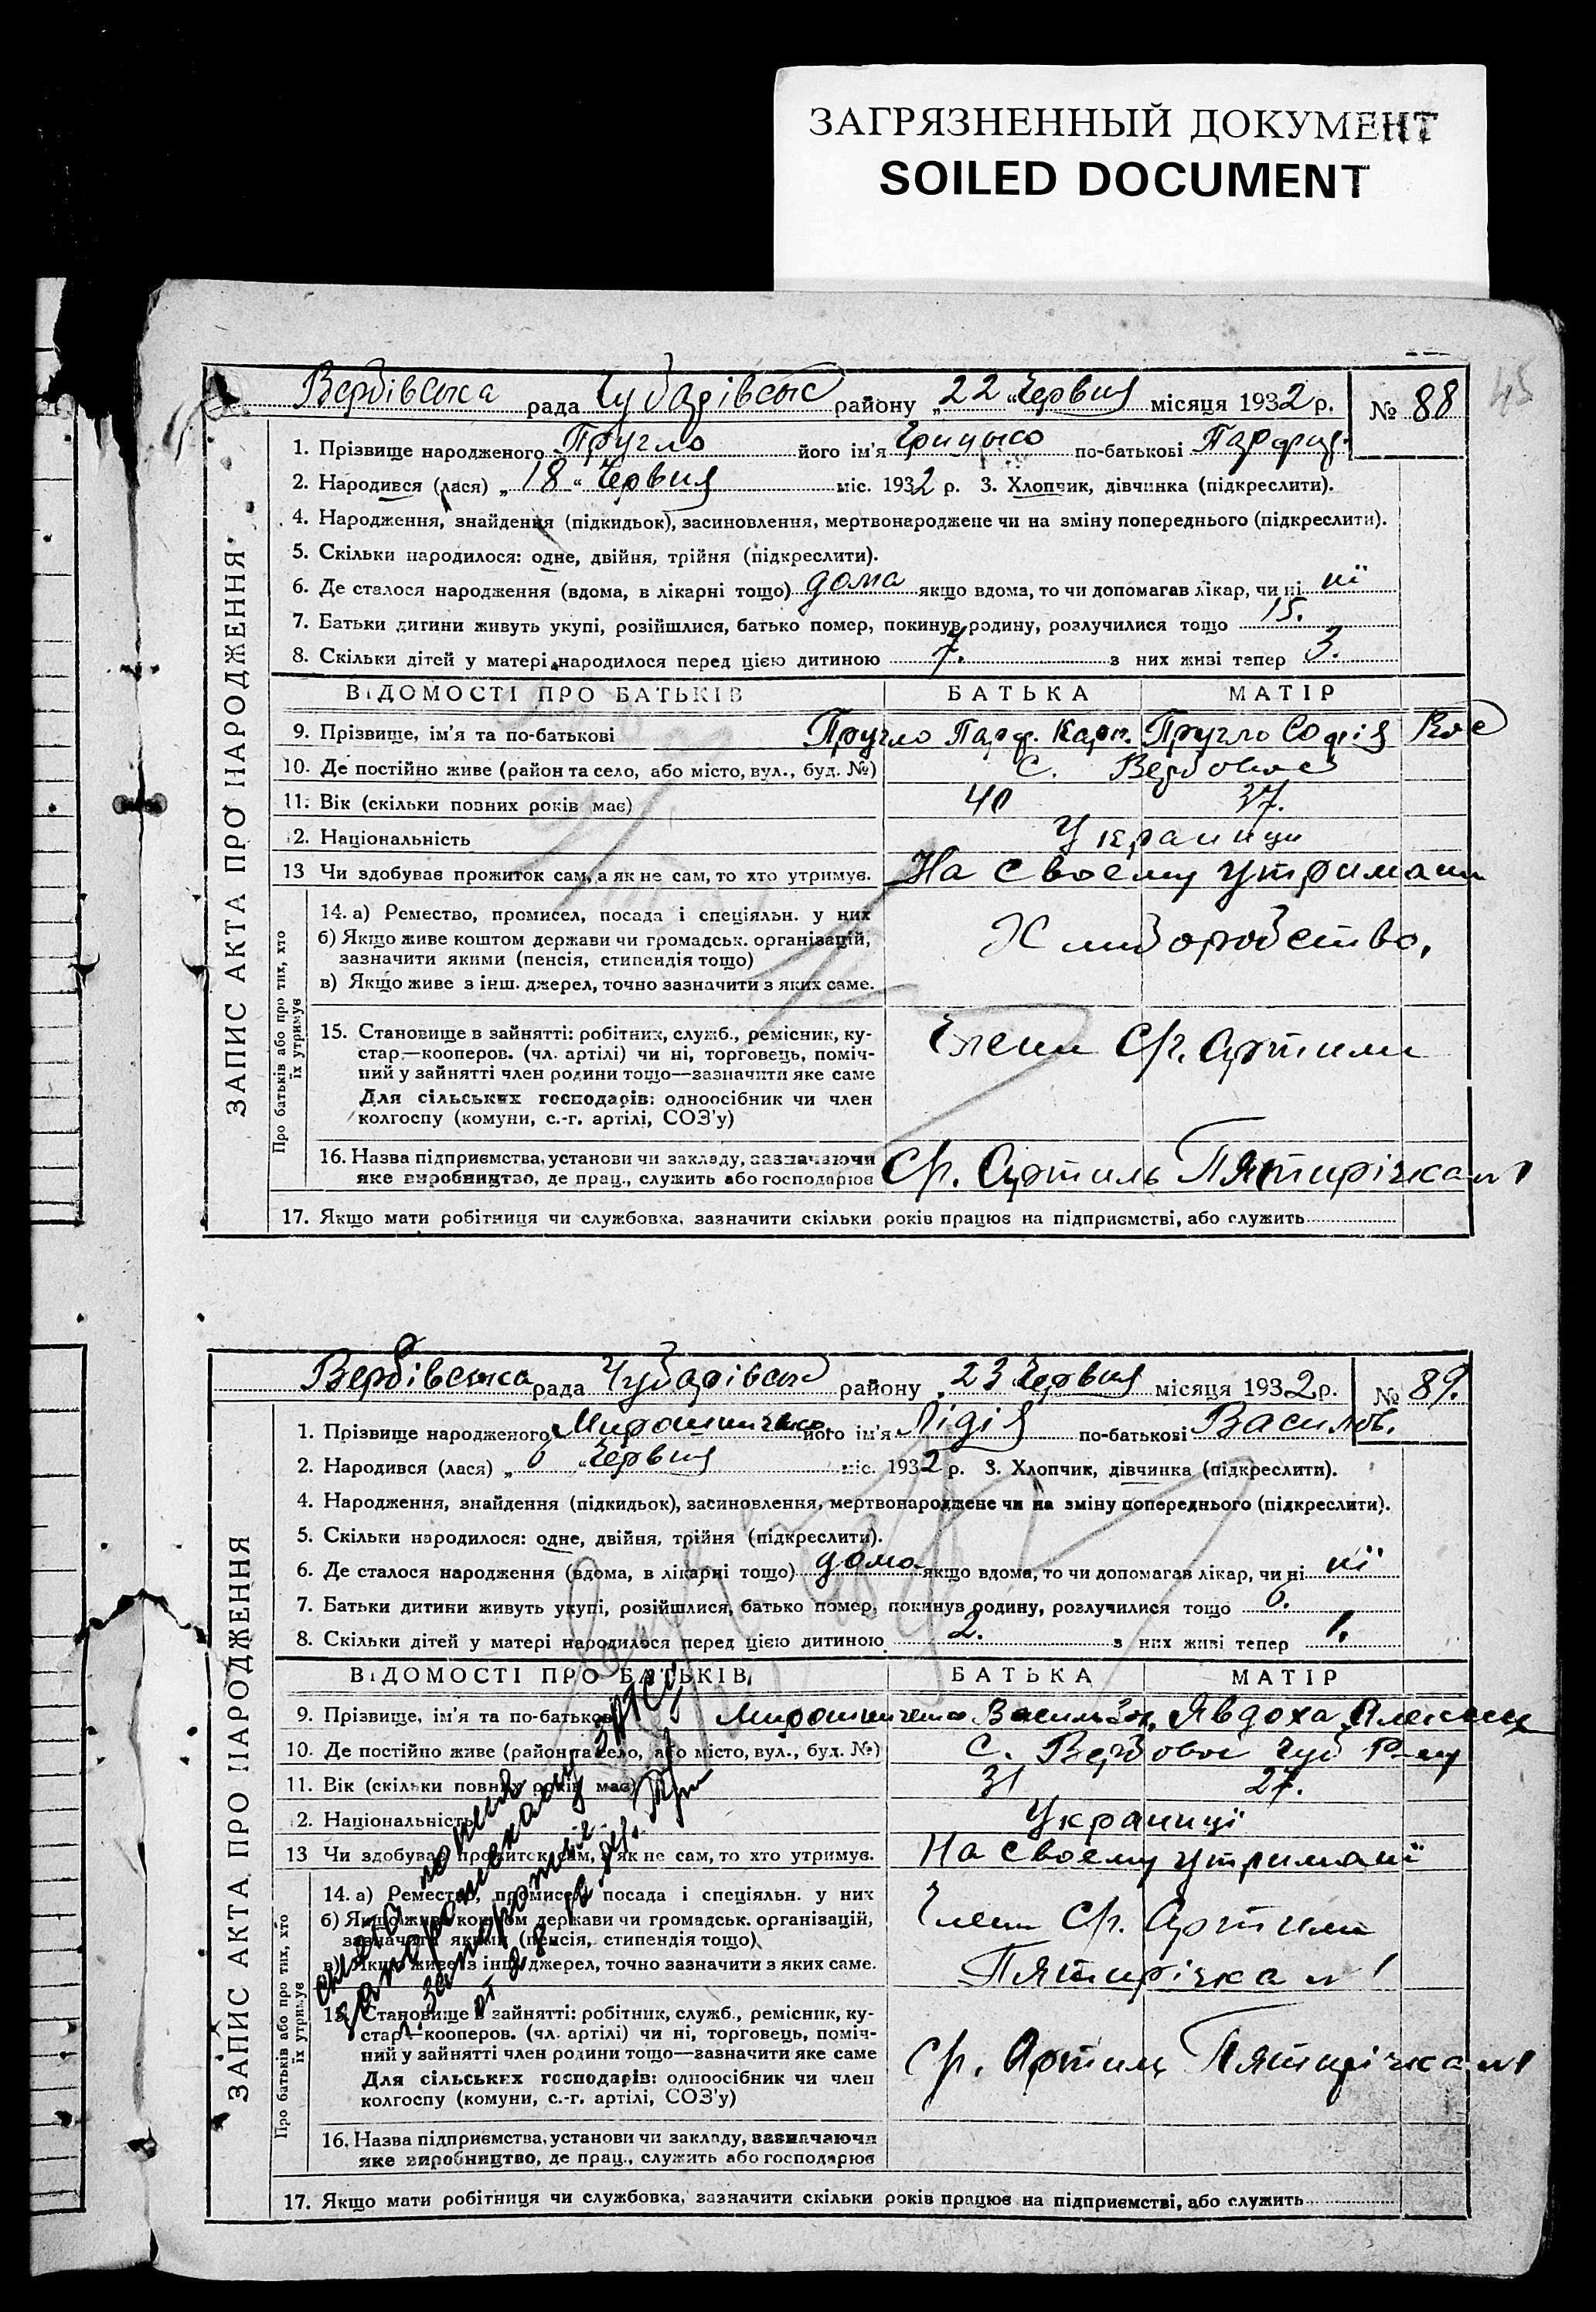 ЗАГРЯЗНЕННЫЙ ДОКУМЕНТ
SOILED DOCUMENT
45
Вербівська рада Чубарівськ району „22“ Червня місяця 1932 р. № 88
ЗАПИС АКТА ПРО НАРОДЖЕННЯ
1. Прізвище народженого Пругло його ім'я Грицько по-батькові Парфир.
2. Народився (лася) „18“ Червня міс. 1932 р. 3. Хлопчик, дівчинка (підкреслити).
4. Народження, знайдення (підкидьок), засиновлення, мертвонароджене чи на зміну попереднього (підкреслити).
5. Скільки народилося: одне, двійня, трійня (підкреслити).
6. Де сталося народження (вдома, в лікарні тощо) дома якщо вдома, то чи допомагав лікар, чи ні ні
7. Батьки дитини живуть укупі, розійшлися, батько помер, покинув родину, розлучилися тощо 15.
8. Скільки дітей у матері народилося перед цією дитиною 7. з них живі тепер 3.
ВІДОМОСТІ ПРО БАТЬКІВ БАТЬКА МАТІР
9. Прізвище, ім'я та по-батькові Пругло Парф. Карп. Пругло Софія
10. Де постійно живе (район та село, або місто, вул., буд. №) с. Вербовое
11. Вік (скільки повних років має) 40 37.
12. Національність Українци
13 Чи здобуває прожиток сам, а як не сам, то хто утримує. На своему утримани
Про батьків або про тих, хто їх утримує
14. а) Ремество, промисел, посада і спеціяльн. у них Хлиборобство,
б) Якщо живе коштом держави чи громадськ. організацій,
зазначити якими (пенсія, стипендія тощо)
в) Якщо живе з інш. джерел, точно зазначити з яких саме.
15. Становище в зайнятті: робітник, служб., ремісник, ку-
стар—кооперов. (чл. артілі) чи ні, торговець, поміч- Члени С/г. Артили
ний у зайнятті член родини тощо—зазначити яке саме
Для сільських господарів: одноосібник чи член
колгоспу (комуни, с.-г. артілі, СОЗ'у)
16. Назва підприємства, установи чи закладу, зазначаючи С/г. Артиль Пятирічка №1
яке виробництво, де прац., служить або господарює
17. Якщо мати робітниця чи службовка, зазначити скільки років працює на підприємстві, або служить
Вербівська рада Чубарівськ району „23 Червня місяця 1932 р. № 89.
ЗАПИС АКТА ПРО НАРОДЖЕННЯ
1. Прізвище народженого Мирошниченко його ім'я Лідія по-батькові Василов.
2. Народився (лася) „ “ Червня міс. 1932 р. 3. Хлопчик, дівчинка (підкреслити).
4. Народження, знайдення (підкидьок), засиновлення, мертвонароджене чи на зміну попереднього (підкреслити).
5. Скільки народилося: одне, двійня, трійня (підкреслити).
6. Де сталося народження (вдома, в лікарні тощо) дома якщо вдома, то чи допомагав лікар, чи ні ні
7. Батьки дитини живуть укупі, розійшлися, батько помер, покинув родину, розлучилися тощо 6.
8. Скільки дітей у матері народилося перед цією дитиною 2. з них живі тепер 1.
ВІДОМОСТІ ПРО БАТЬКІВ БАТЬКА МАТІР
9. Прізвище, ім'я та по-батькові Мирошниченко Василь Явдоха
10. Де постійно живе (район та село, або місто, вул., буд. №) с. Вербовое Чуб Р-ну
11. Вік (скільки повних років має) 31 27.
12. Національність Українці
13 Чи здобуває прожиток сам, а як не сам, то хто утримує. На своему утримані
Про батьків або про тих, хто їх утримує
14. а) Ремество, промисел, посада і спеціяльн. у них Члени С/г. Артили
б) Якщо живе коштом держави чи громадськ. організацій,
зазначити якими (пенсія, стипендія тощо) Пятирічка №1
в) Якщо живе з інш. джерел, точно зазначити з яких саме.
15. Становище в зайнятті: робітник, служб., ремісник, ку-
стар—кооперов. (чл. артілі) чи ні, торговець, поміч-
ний у зайнятті член родини тощо—зазначити яке саме С/г. Артиль Пятирічка №1
Для сільських господарів: одноосібник чи член
колгоспу (комуни, с.-г. артілі, СОЗ'у)
16. Назва підприємства, установи чи закладу, зазначаючи
яке виробництво, де прац., служить або господарює
17. Якщо мати робітниця чи службовка, зазначити скільки років працює на підприємстві, або служить